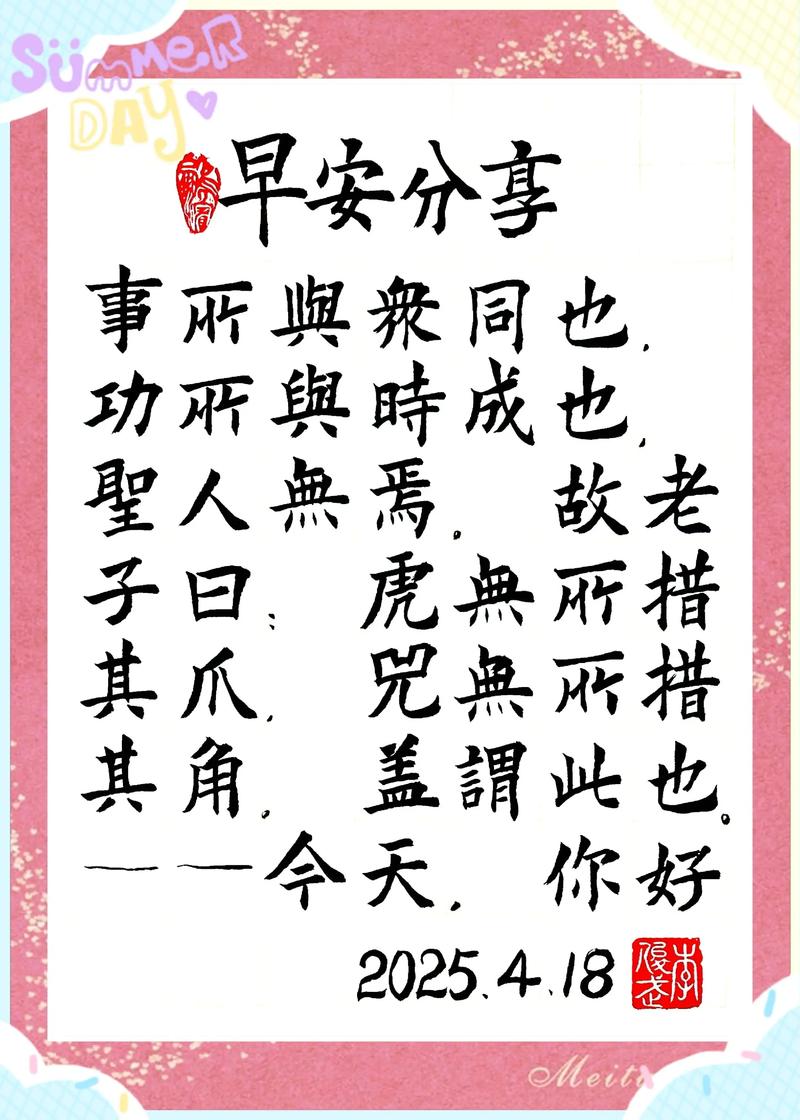 SÜMMER
DAY
早安分享
事所與衆同也.
功所與時成也.
聖人無焉. 故老
子曰: 虎無所措
其爪. 兕無所措
其角. 盖謂此也.
——今天. 你好
2025.4.18
李